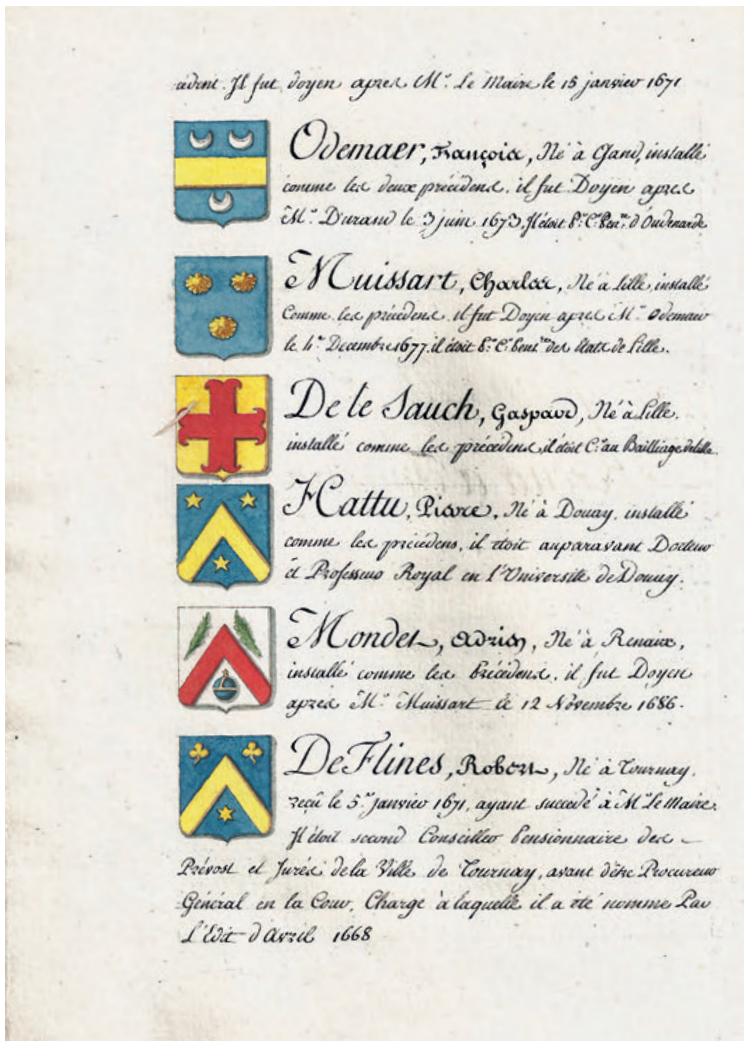 cédent. Il fut doyen apres Mr. Le Maire le 15 janvier 1671
Odemaer, François, Né à Gand, installé
comme les deux précédens. il fut Doyen apres
Mr. Durand le 3 juin 1673. Il étoit Pr. C. Penre. d'Oudenarde
Muissart, Charles, Né à Lille, installé
Comme les précédens. il fut Doyen apres Mr. Odemaer
le 4r. Decembre 1677. il étoit Pr. C. Penre. des états de Lille.
De le Sauch, Gaspard, Né à Lille,
installé comme les précédens, il étoit Cr. au Bailliage de Lille.
Hattu, Pierre, Né à Douay, installé
comme les précédens, il étoit auparavant Docteur
et Professeur Royal en l'Université de Douay.
Mondet, Adrien, Né à Renaix,
installé comme les Précédens, il fut Doyen
apres Mr. Muissart le 12 Novembre 1686.
De Flines, Robert, Né à Tournay,
reçu le 5r. janvier 1671, ayant succedé à Mr. Le Maire.
Il étoit second Conseiller Pensionnaire des
Prévost et Jurés de la Ville de Tournay, avant d'être Procureur
Général en la Cour, Charge à laquelle il a été nommé Par
L'Edit d'Avril 1668